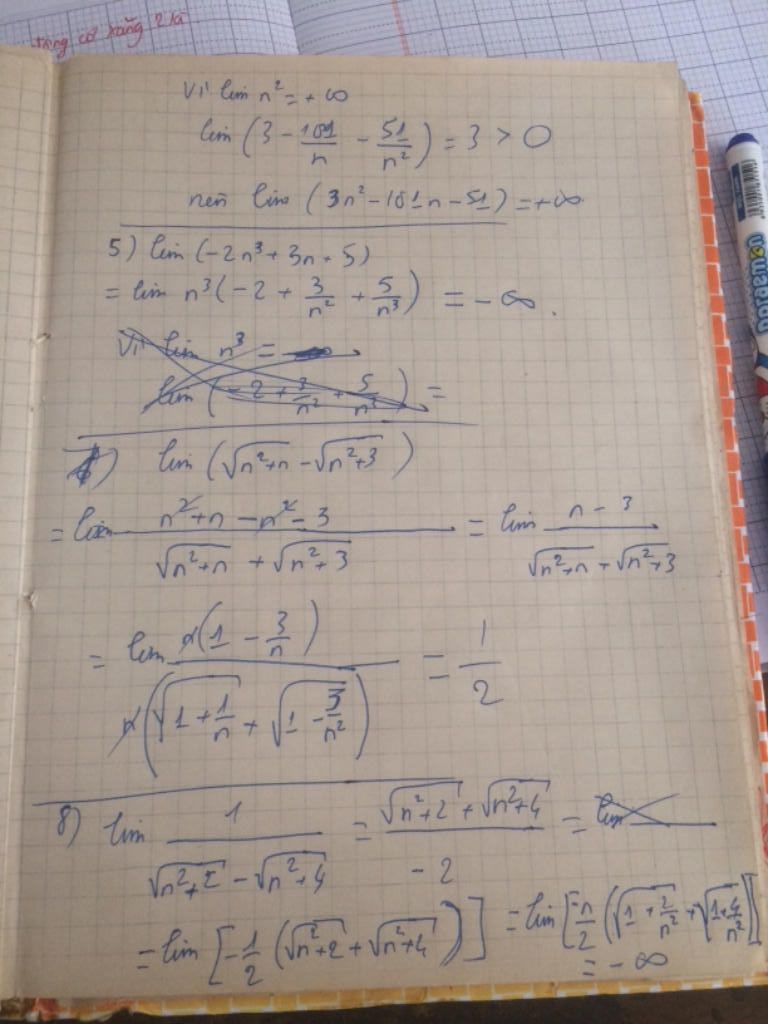 trong có bằng 2 là
Vì lim n² = +∞
lim (3 - 101/n - 51/n²) = 3 > 0
nên lim (3n² - 101n - 51) = +∞
5) lim (-2n³ + 3n + 5)
= lim n³(-2 + 3/n² + 5/n³) = -∞.
Vì lim n³ =
lim (-2 + 3/n² + 5/n³) =
) lim (√(n²+n) - √(n²+3))
= lim (n²+n - n² - 3)/(√(n²+n) + √(n²+3)) = lim (n - 3)/(√(n²+n) + √(n²+3))
= lim n(1 - 3/n)/(n(√(1 + 1/n) + √(1 - 3/n²))) = 1/2
8) lim 1/(√(n²+2) - √(n²+4)) = (√(n²+2) + √(n²+4))/(-2) = lim
= lim [-1/2 (√(n²+2) + √(n²+4))] = lim [-n/2 (√(1 + 2/n²) + √(1 + 4/n²))]
= -∞
Doraemon